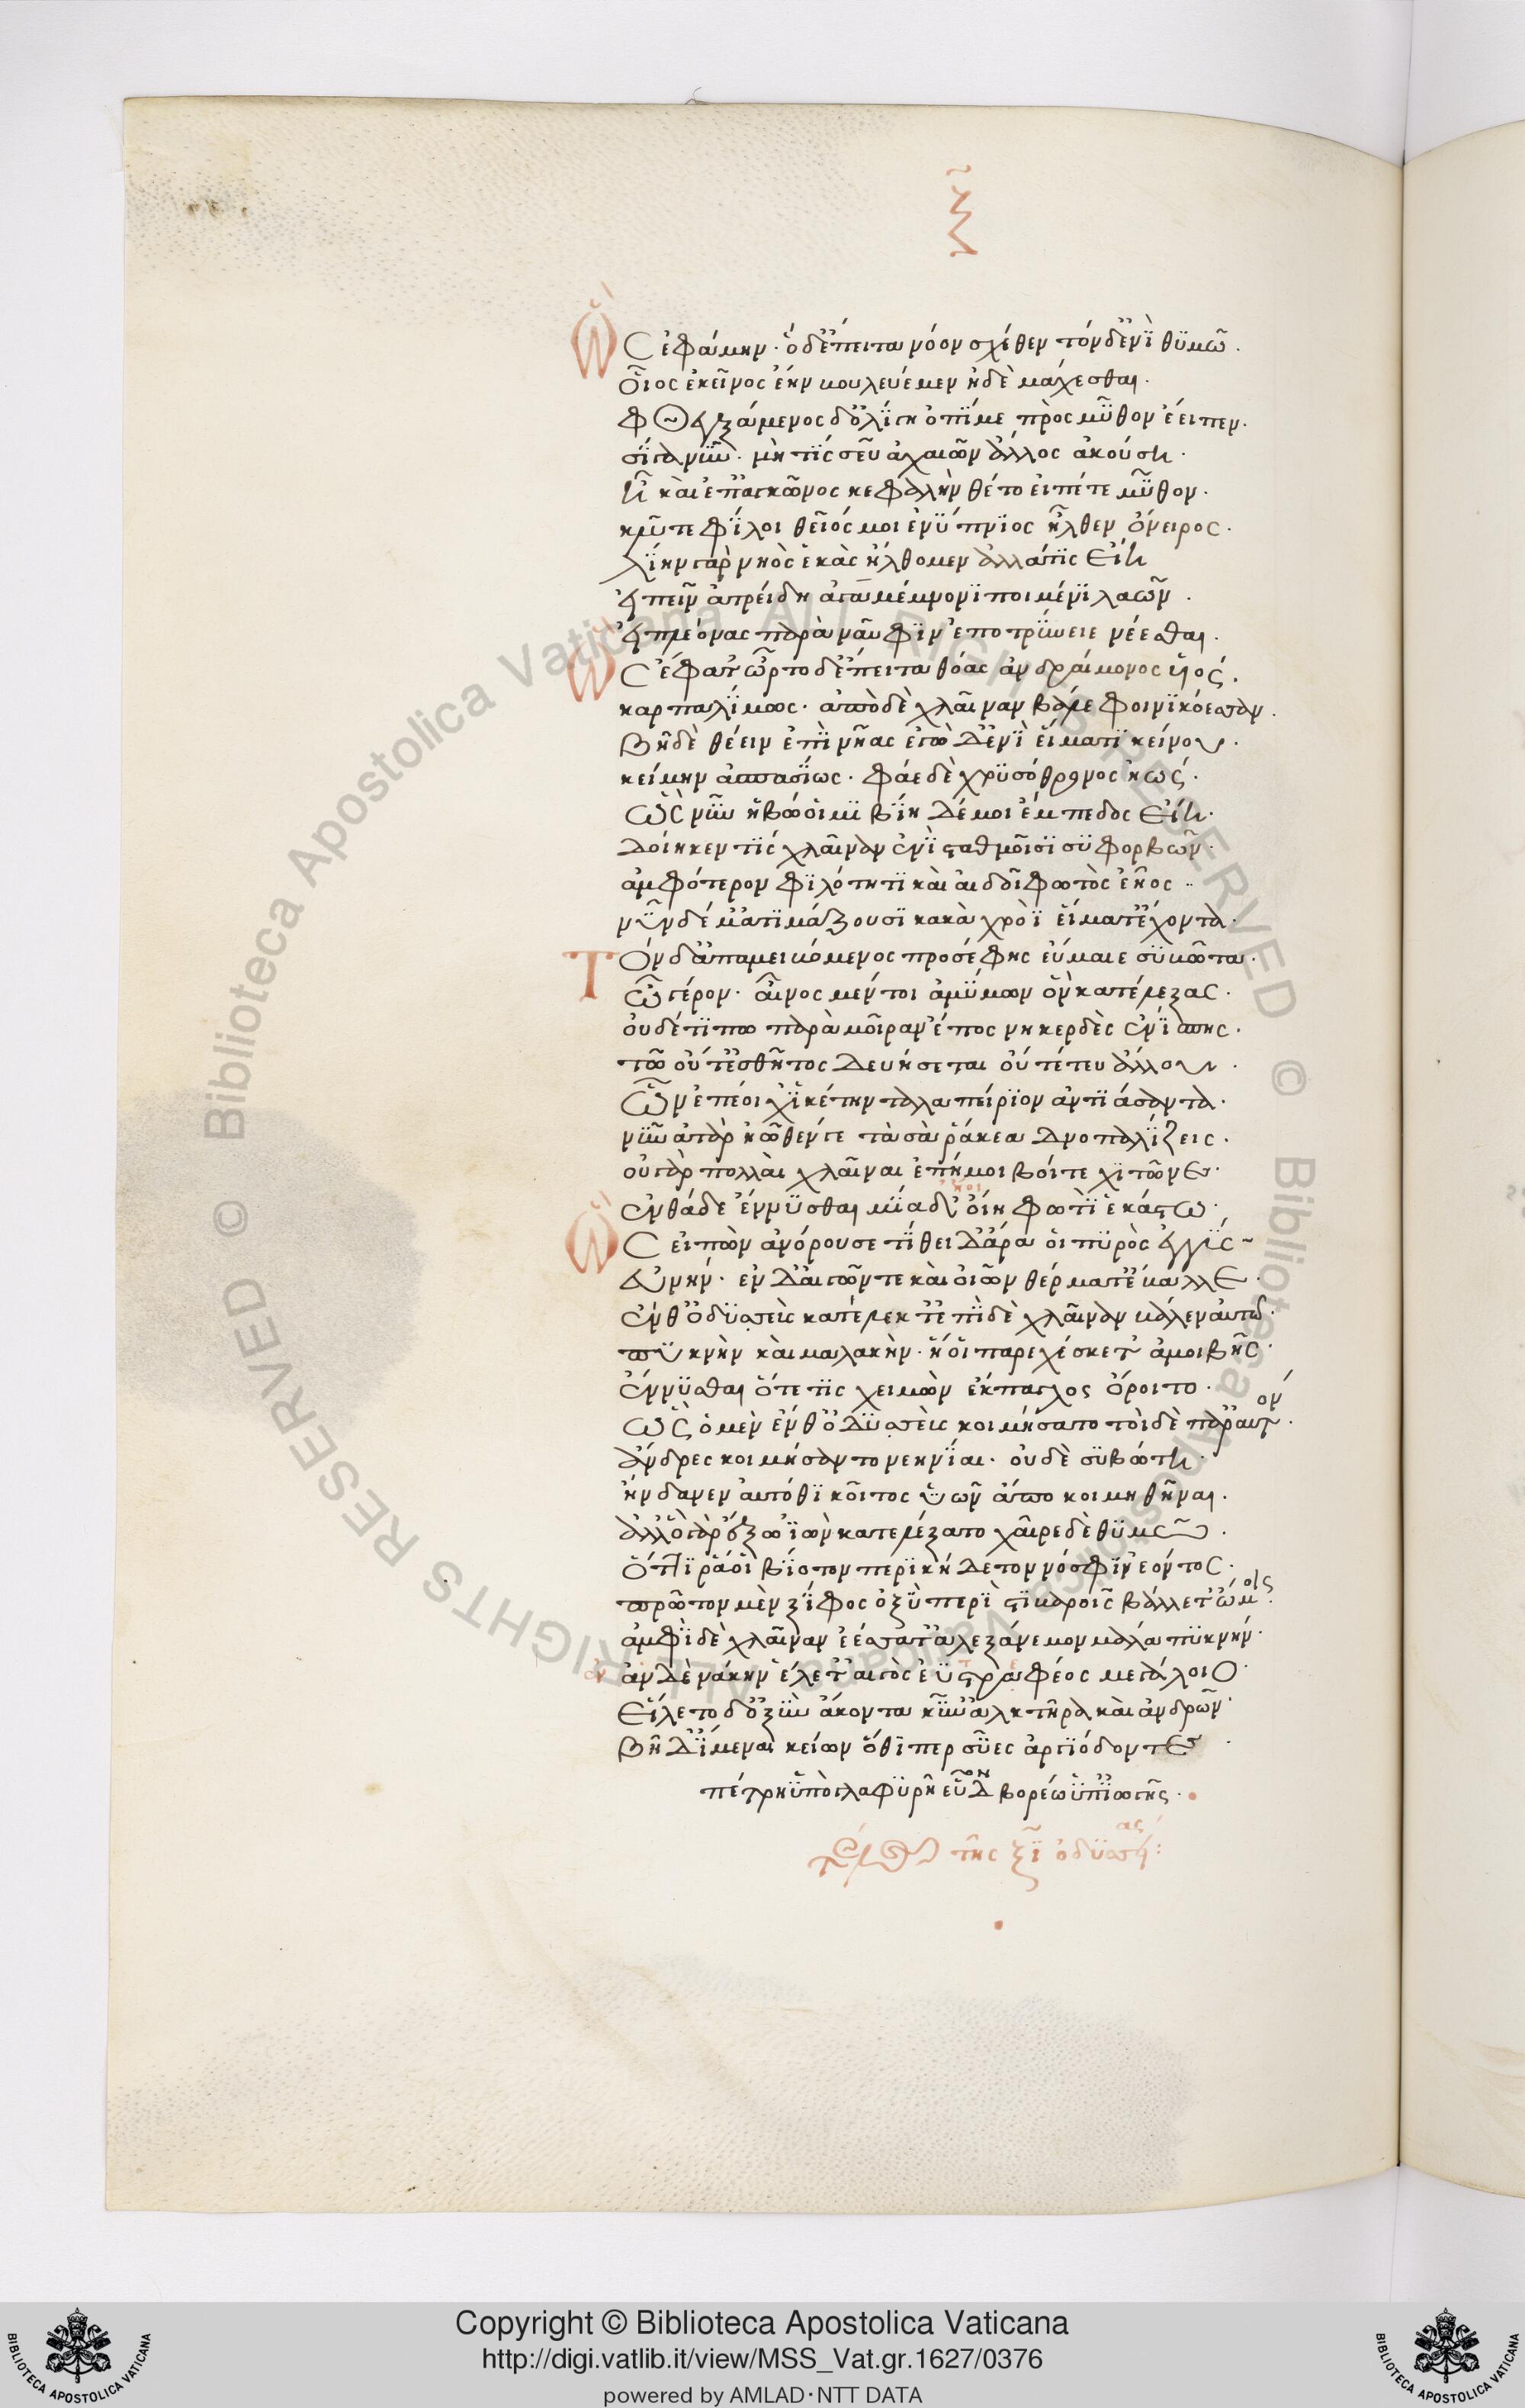 ξ̃
Ὣς ἐφάμην· ὁ δ' ἔπειτα νόον σχέθεν τόνδ' ἐνῒ θϋμῶ.
οἷος ἐκεῖνος ἔην βουλευέμεν ἠδὲ μάχεσθαι.
φθεγξάμενος δ' ὀλίγη ὀπΐ με πρὸς μῦθον ἔειπεν.
σίγα νῦν· μή τίς σεῦ ἀχαιῶν ἄλλος ἀκούση.
ἦ καὶ ἐπ' ἀγκῶνος κεφαλὴν θέτο εἶπέ τε μῦθον.
κλῦτε φίλοι θεῖός μοι ἐνύπνιος ἦλθεν ὄνειρος.
λίην γὰρ νηὸς ἑκὰς ἤλθομεν ἀλλά τις εἴη
εἰπεῖν ἀτρείδη ἀγαμέμνονι ποιμένι λαῶν.
εἰ πλέονας παρὰ ναῦφιν ἐποτρύνειε νέεσθαι.
Ὣς ἔφατ' ὦρτο δ' ἔπειτα θόας ἀνδραίμονος υἱός.
καρπαλίμως· ἀπὸ δὲ χλαῖναν βάλε φοινικόεσσαν.
βῆ δὲ θέειν ἐπὶ νῆας ἐγὼ δ' ἐνὶ εἵματι κείνου.
κείμην ἀσπασίως· φάε δὲ χρυσόθρονος ἠώς.
ὣς νῦν ἡβώοιμι βίη δέ μοι ἔμπεδος εἴη.
δοίη κέν τίς χλαῖναν ἐνὶ σταθμοῖσι συφορβῶν.
ἀμφότερον φιλότητι καὶ αἰδοῖ φωτὸς ἑῆος..
νῦν δέ μ' ἀτιμάζουσι κακὰ χροῒ εἵματ' ἔχοντα.
Τὸν δ' ἀπαμειβόμενος προσέφης εὔμαιε συβῶτα.
ὦ γέρον· αἶνος μέν τοι ἀμύμων ὃν κατέλεξας.
οὐδέ τί πω παρὰ μοῖραν ἔπος νηκερδὲς ἔνισπης.
τῶ οὔτ' ἐσθῆτος δευήσεαι οὔτέ τευ ἄλλου.
ὧν ἐπέοιχ' ἱκέτην ταλαπείριον ἀντιάσαντα.
νῦν ἀτὰρ ἠῶθέν γε τὰ σὰ ῥάκεα δνοπαλίξεις.
οὐ γὰρ πολλαὶ χλαῖναι ἐπημοιβοί τε χιτῶνες.
ἐνθάδε ἕννυσθαι μία δ' οἴη φωτὶ ἑκάστω.
Ὣς εἰπὼν ἀνόρουσε τίθει δ' ἄρα οἱ πυρὸς ἐγγὺς
εὐνήν· ἐν δ' αἰγῶν τε καὶ οἰῶν θέρματ' ἔβαλλε.
ἔνθ' ὀδυσσεὺς κατέλεκτ' ἐπὶ δὲ χλαῖναν βάλεν αὐτῶ.
πυκνὴν καὶ μαλακὴν· ἥ οἱ παρεχέσκετ' ἀμοιβῆς.
ἕννυσθαι ὅτέ τις χειμὼν ἔκπαγλος ὄροιτο.
ὣς ὁ μὲν ἔνθ' ὀδυσσεὺς κοιμήσατο τοὶ δὲ παρ' αὐτόν.
ἄνδρες κοιμήσαντο νεηνίαι· οὐδὲ συβώτη.
ἥνδανεν αὐτόθι κοῖτος ὑῶν ἄπο κοιμηθῆναι.
ἀλλ' ὅ γὰρ ἔξω ἰὼν κατελέξατο χαῖρε δὲ θυμῶ.
ὅττι ῥά οἱ βίοτου περικήδετο νόσφιν ἐόντος.
πρῶτον μὲν ξίφος ὀξὺ περὶ στιβαροῖς βάλλετ' ὤμοις.
ἀμφὶ δὲ χλαῖναν ἑέσσατ' ἀλεξάνεμον μάλα πυκνήν.
ἂν δὲ νάκην ἕλετ' αἰγὸς ἐϋστραφέος μεγάλοιο.
εἵλετο δ' ὀξὺν ἄκοντα κυνῶν ἀλκτῆρα καὶ ἀνδρῶν.
βῆ δ' ἴμεναι κείων ὅθι περ σύες ἀργιόδοντες.
πέτρη ὕπο γλαφυρῆ εὗδον βορέω ὑπ' ἰωγῆς.
τέλος τῆς ξῖ ὀδυσσείας:
Copyright © Biblioteca Apostolica Vaticana
http://digi.vatlib.it/view/MSS_Vat.gr.1627/0376
powered by AMLAD·NTT DATA